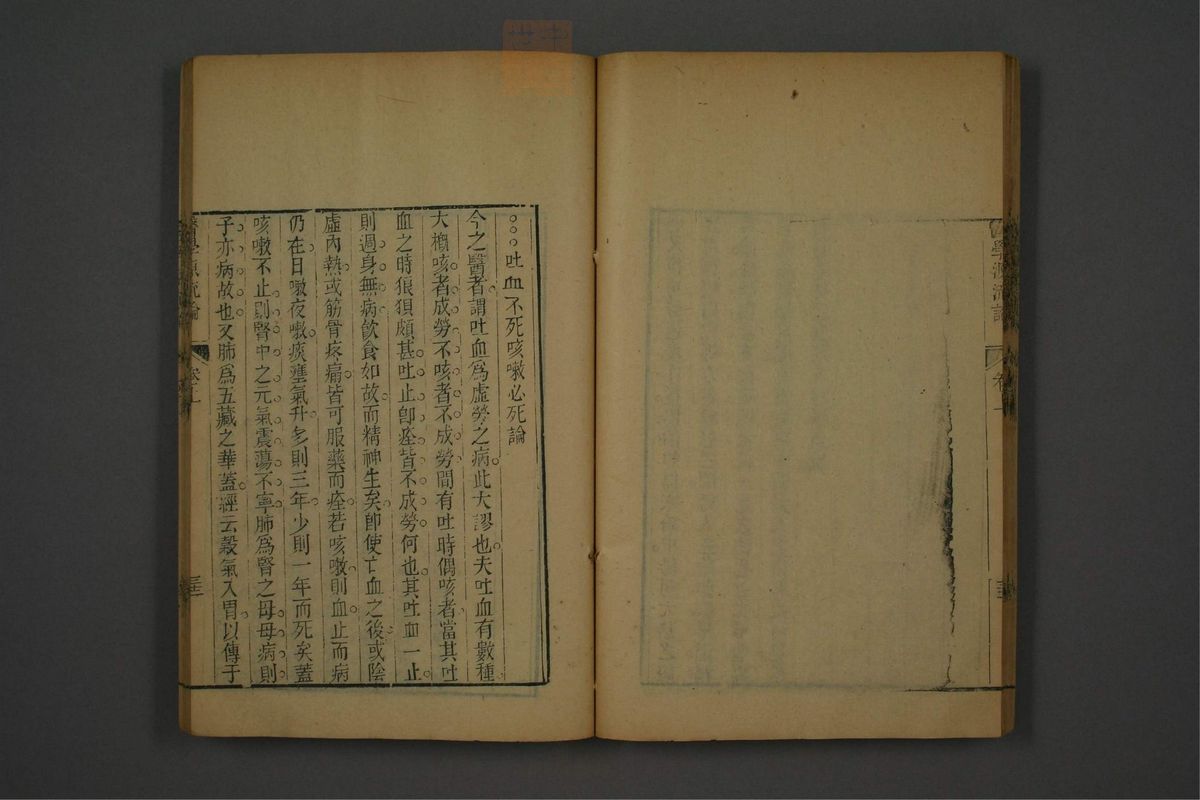 醫學源流論
卷上
三十二
吐血不死咳嗽必死論
今之醫者謂吐血爲虛勞之病此大謬也夫吐血有數種
大槪咳者成勞不咳者不成勞間有吐時偶咳者當其吐
血之時狼狽頗甚吐止卽痊皆不成勞何也其吐血一止
則週身無病飮食如故而精神生矣卽使亡血之後或陰
虛內熱或筋骨疼痛皆可服藥而痊若咳嗽則血止而病
仍在日嗽夜嗽痰壅氣升多則三年少則一年而死矣蓋
咳嗽不止則腎中之元氣震蕩不寧肺爲腎之母母病則
子亦病故也又肺爲五藏之華蓋經云穀氣入胃以傳于
醫學源流論
卷上
三十三